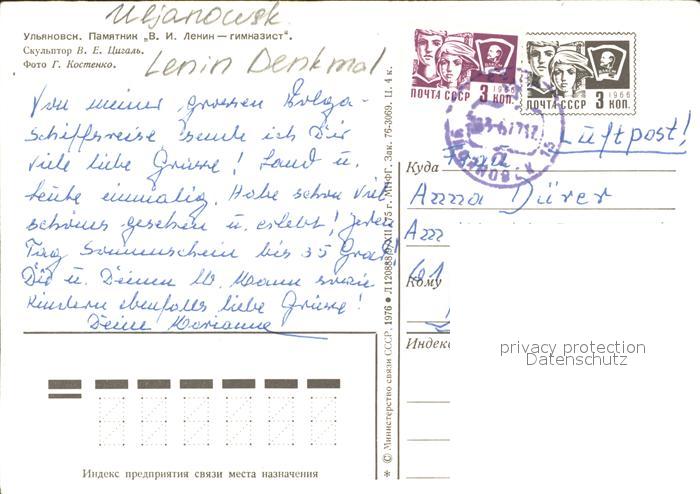 Uljanowsk
Ульяновск. Памятник „В. И. Ленин — гимназист".
Скульптор В. Е. Цигаль.
Фото Г. Костенко.
Lenin Denkmal
Von meiner grossen Wolga-
schiffsreise sende ich Dir
viele liebe Grüsse! Land u.
Leute einmalig. Habe schon viel
schönes gesehen u. erlebt! Jeden
Tag Sonnenschein bis 35 Grad!
Dir u. Deinem Mann sowie
Kindern ebenfalls liebe Grüsse!
Deine Marianne
Индекс предприятия связи места назначения
* © Министерство связи СССР, 1976 • Л120888 XII-75 г. МПФГ. Зак. 76-3069. Ц. 4 к.
ПОЧТА СССР 3 КОП. 1966
ПОЧТА СССР 3 КОП. 1966
Luftpost!
Куда
Anna Dürer
Кому
61
Индекс
privacy protection
Datenschutz